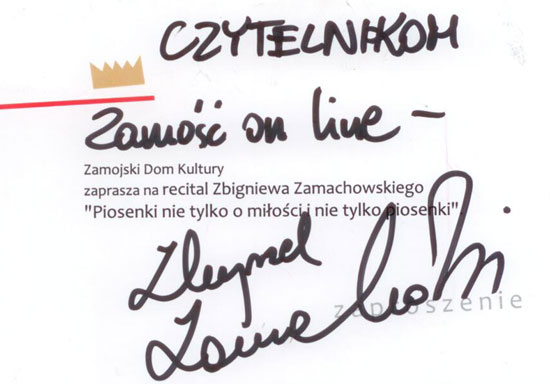 CZYTELNIKOM
Zamość on line –
Zamojski Dom Kultury
zaprasza na recital Zbigniewa Zamachowskiego
"Piosenki nie tylko o miłości i nie tylko piosenki".
Zbigniew
Zamachowski
zaproszenie